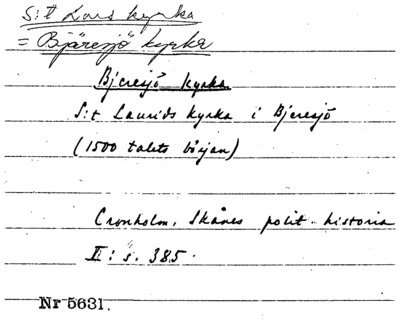 S:t Lars kyrka
= Bjäresjö kyrka
Bjeresjö kyrka
S:t Laurids kyrka i Bjeresjö
(1500 talets början)
Cronholm, Skånes polit. historia
II: s. 385.
Nr 5631.